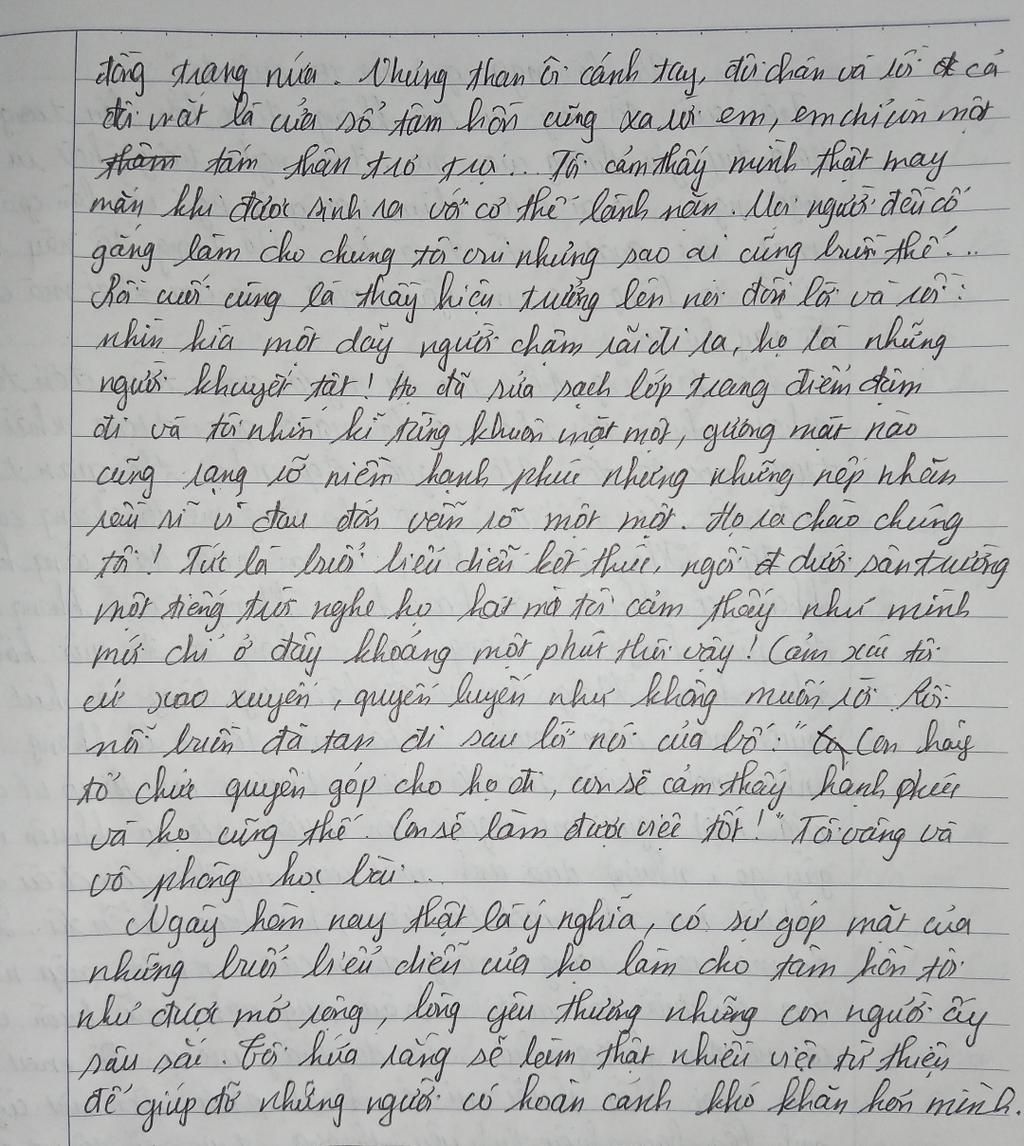 đồng trang nứa. Nhưng than ôi cánh tay, đôi chân và rồi cả
đôi mắt là cửa sổ tâm hồn cũng xa rời em, em chỉ còn một
thâm tấm thân trơ trụi... Tôi cảm thấy mình thật may
mắn khi được sinh ra với cơ thể lành nặn. Mọi người đều cố
gắng làm cho chúng tôi vui nhưng sao ai cũng buồn thế!..
Rồi cuối cùng là thầy hiệu trưởng lên nói đôi lời và rồi:
nhìn kìa một dãy người chậm rãi đi ra, họ là những
người khuyết tật! Họ đã rửa sạch lớp trang điểm đậm
đi và tôi nhìn kĩ từng khuôn mặt một, gương mặt nào
cũng rạng rỡ niềm hạnh phúc nhưng những nếp nhăn
rầu rĩ vì đau đớn vẫn rõ mồn một. Họ ra chào chúng
tôi! Tức là buổi biểu diễn kết thúc, ngồi dưới sân trường
một tiếng trời nghe họ hát mà tôi cảm thấy như mình
mới chỉ ở đây khoảng một phút thôi vậy! Cảm xúc tôi
cứ xao xuyến, quyến luyến như không muốn rời. Rồi
nỗi buồn đã tan đi sau lời nói của bố: "Con hãy
tổ chức quyên góp cho họ đi, con sẽ cảm thấy hạnh phúc
và họ cũng thế. Con sẽ làm được việc tốt!" Tôi vâng và
vô phòng học bài...
Ngày hôm nay thật là ý nghĩa, có sự góp mặt của
những buổi biểu diễn của họ làm cho tâm hồn tôi
như được mở rộng, lòng yêu thương những con người ấy
sâu sắc. Tôi hứa rằng sẽ làm thật nhiều việc từ thiện
để giúp đỡ những người có hoàn cảnh khó khăn hơn mình.